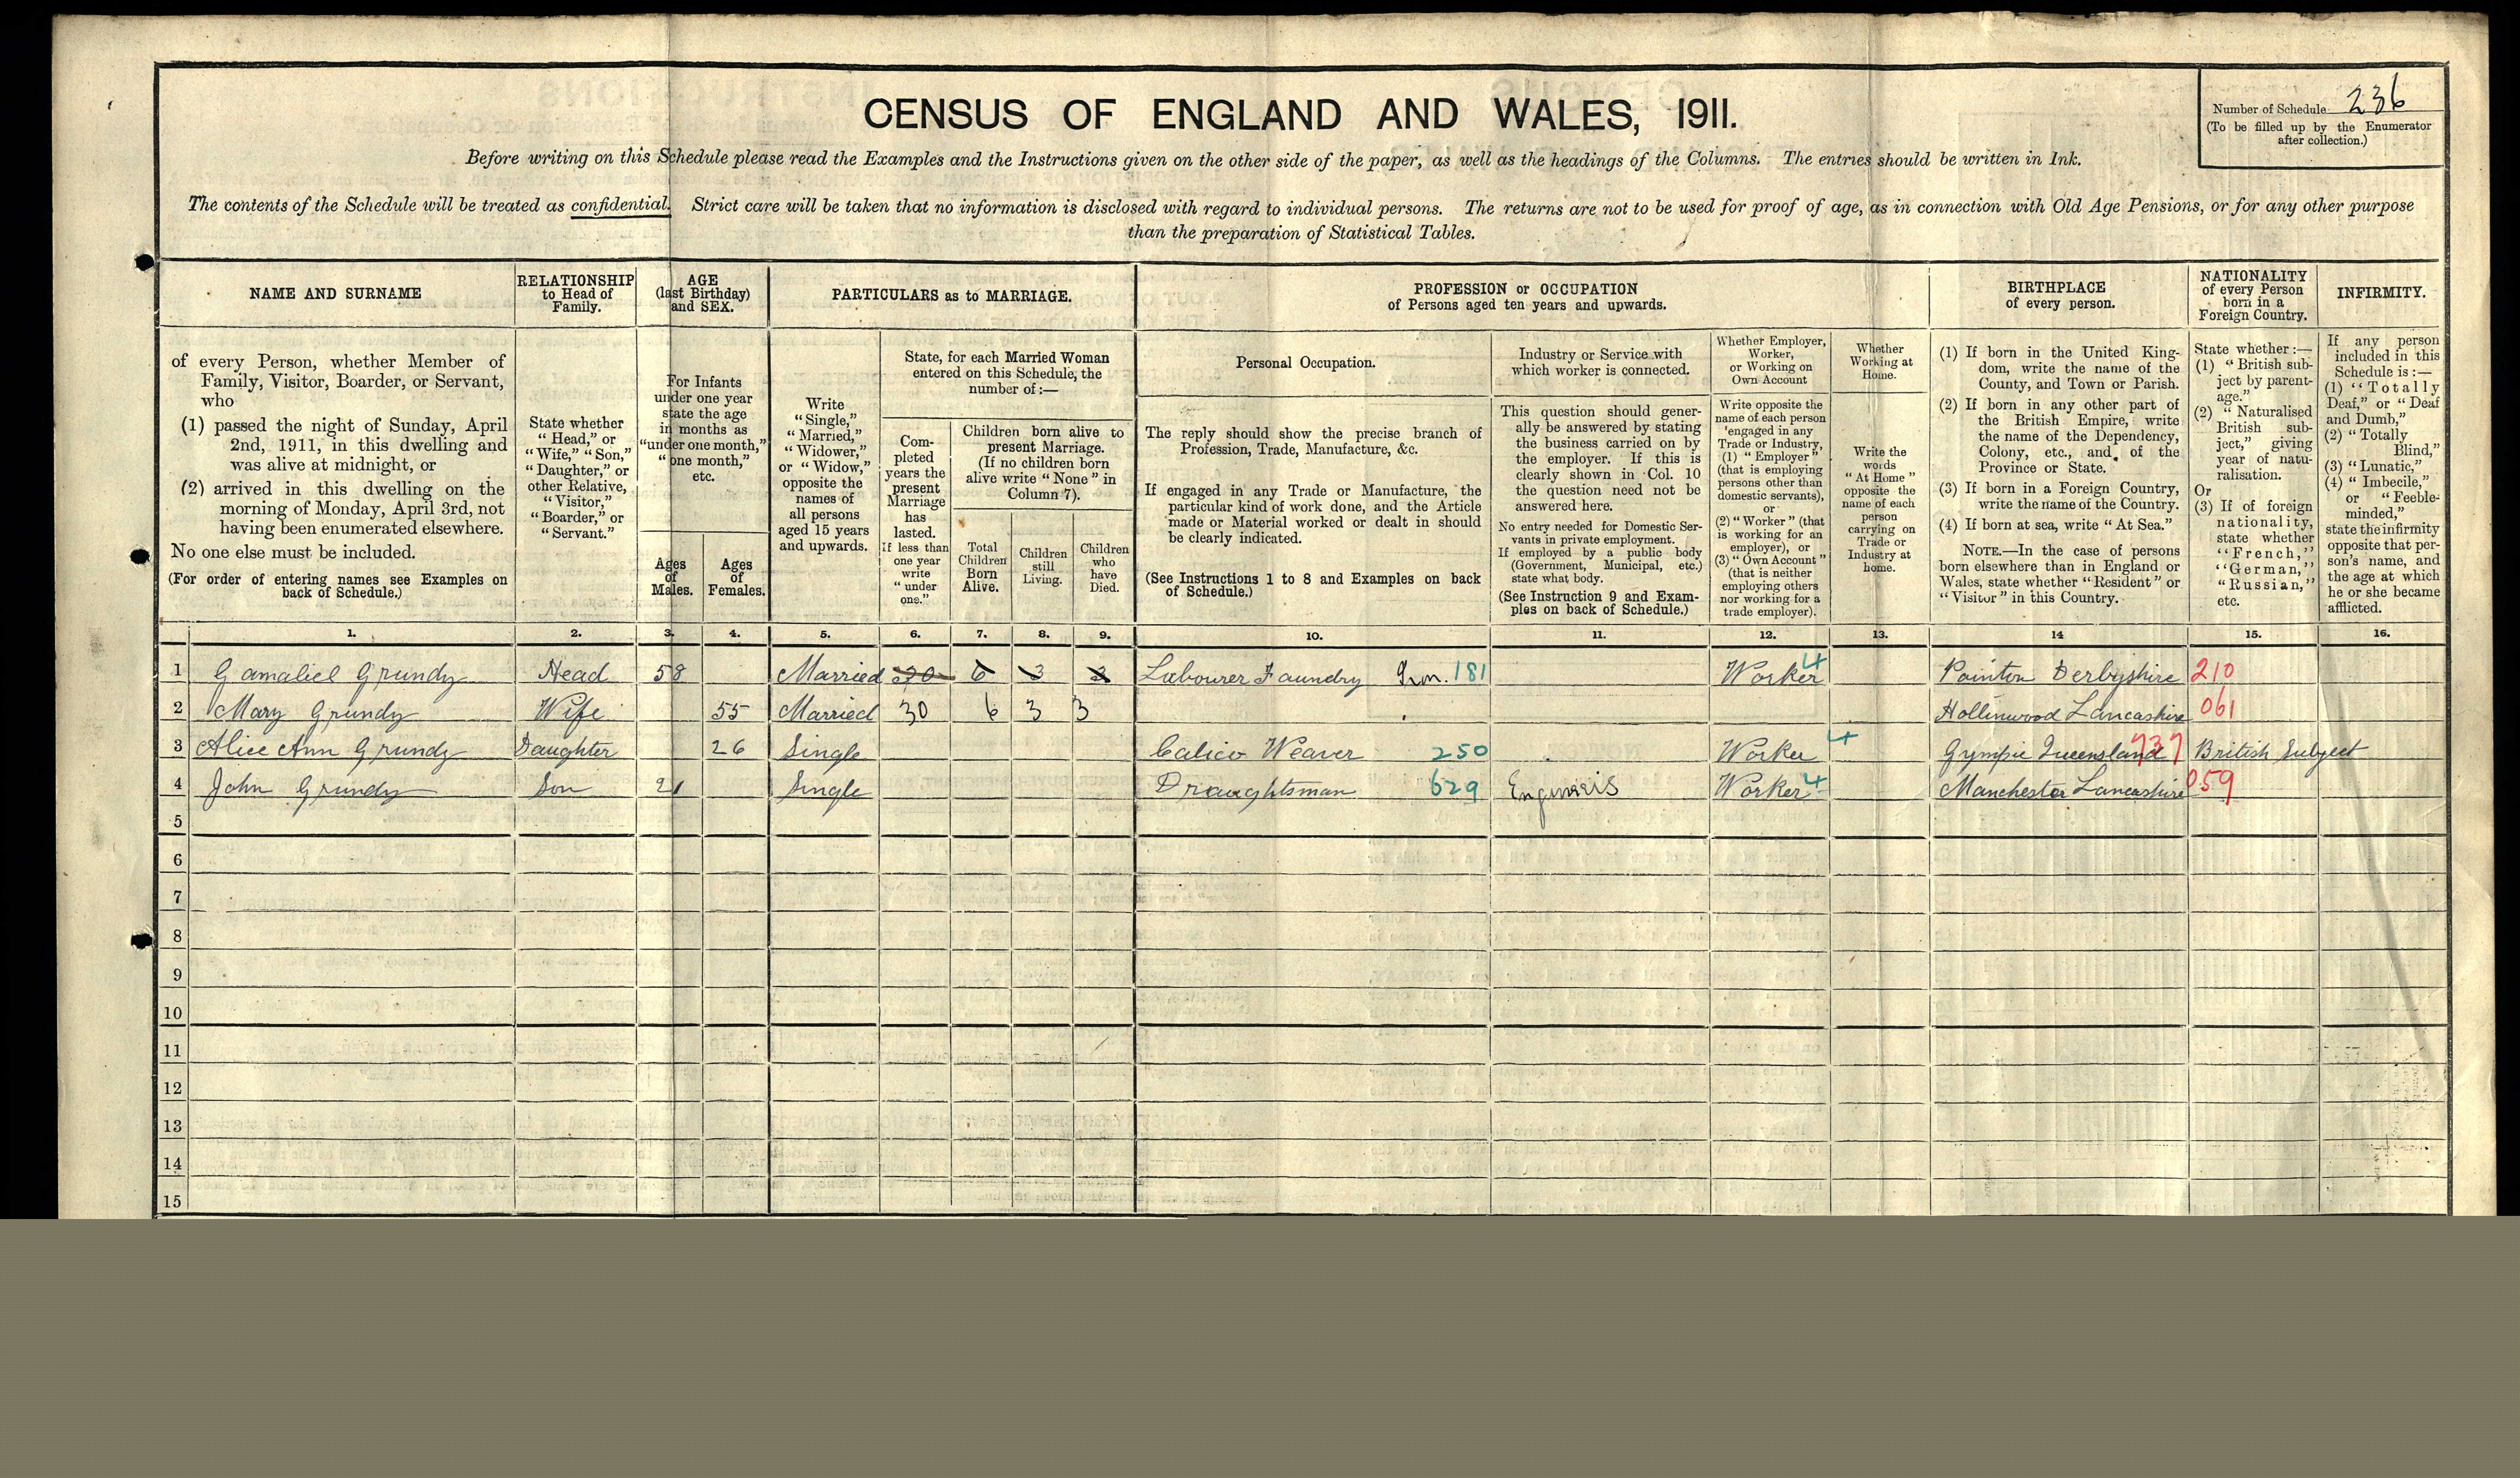 Number of Schedule 236
(To be filled up by the Enumerator
after collection.)
CENSUS OF ENGLAND AND WALES, 1911.
Before writing on this Schedule please read the Examples and the Instructions given on the other side of the paper, as well as the headings of the Columns. The entries should be written in Ink.
The contents of the Schedule will be treated as confidential. Strict care will be taken that no information is disclosed with regard to individual persons. The returns are not to be used for proof of age, as in connection with Old Age Pensions, or for any other purpose
than the preparation of Statistical Tables.
NAME AND SURNAME
of every Person, whether Member of
Family, Visitor, Boarder, or Servant,
who
(1) passed the night of Sunday, April
2nd, 1911, in this dwelling and
was alive at midnight, or
(2) arrived in this dwelling on the
morning of Monday, April 3rd, not
having been enumerated elsewhere.
No one else must be included.
(For order of entering names see Examples on
back of Schedule.)
RELATIONSHIP
to Head of
Family.
State whether
"Head," or
"Wife," "Son,"
"Daughter," or
other Relative,
"Visitor,"
"Boarder," or
"Servant."
AGE
(last Birthday)
and SEX.
For Infants
under one year
state the age
in months as
"under one month,"
"one month,"
etc.
Ages
of
Males.
Ages
of
Females.
PARTICULARS as to MARRIAGE.
Write
"Single,"
"Married,"
"Widower,"
or "Widow,"
opposite the
names of
all persons
aged 15 years
and upwards.
State, for each Married Woman
entered on this Schedule, the
number of:—
Com-
pleted
years the
present
Marriage
has
lasted.
If less than
one year
write
"under
one."
Children born alive to
present Marriage.
(If no children born
alive write "None" in
Column 7).
Total
Children
Born
Alive.
Children
still
Living.
Children
who
have
Died.
PROFESSION or OCCUPATION
of Persons aged ten years and upwards.
Personal Occupation.
The reply should show the precise branch of
Profession, Trade, Manufacture, &c.
If engaged in any Trade or Manufacture, the
particular kind of work done, and the Article
made or Material worked or dealt in should
be clearly indicated.
(See Instructions 1 to 8 and Examples on back
of Schedule.)
Industry or Service with
which worker is connected.
This question should gener-
ally be answered by stating
the business carried on by
the employer. If this is
clearly shown in Col. 10
the question need not be
answered here.
No entry needed for Domestic Ser-
vants in private employment.
If employed by a public body
(Government, Municipal, etc.)
state what body.
(See Instruction 9 and Exam-
ples on back of Schedule.)
Whether Employer,
Worker,
or Working on
Own Account
Write opposite the
name of each person
engaged in any
Trade or Industry,
(1) "Employer"
(that is employing
persons other than
domestic servants),
or
(2) "Worker" (that
is working for an
employer), or
(3) "Own Account"
(that is neither
employing others
nor working for a
trade employer).
Whether
Working at
Home.
Write the
words
"At Home"
opposite the
name of each
person
carrying on
Trade or
Industry at
home.
BIRTHPLACE
of every person.
(1) If born in the United King-
dom, write the name of the
County, and Town or Parish.
(2) If born in any other part of
the British Empire, write
the name of the Dependency,
Colony, etc., and of the
Province or State.
(3) If born in a Foreign Country,
write the name of the Country.
(4) If born at sea, write "At Sea."
NOTE.—In the case of persons
born elsewhere than in England or
Wales, state whether "Resident" or
"Visitor" in this Country.
NATIONALITY
of every Person
born in a
Foreign Country.
State whether:—
(1) "British sub-
ject by parent-
age."
(2) "Naturalised
British sub-
ject," giving
year of natu-
ralisation.
Or
(3) If of foreign
nationality,
state whether
"French,"
"German,"
"Russian,"
etc.
INFIRMITY.
If any person
included in this
Schedule is:—
(1) "Totally
Deaf," or "Deaf
and Dumb,"
(2) "Totally
Blind,"
(3) "Lunatic,"
(4) "Imbecile,"
or "Feeble-
minded,"
state the infirmity
opposite that per-
son's name, and
the age at which
he or she became
afflicted.
1. 2. 3. 4. 5. 6. 7. 8. 9. 10. 11. 12. 13. 14 15. 16.
1 Gamaliel Grundy Head 58 Married 30 6 3 3 Labourer Foundry Iron. 181 Worker 4 Pointon Derbyshire 210
2 Mary Grundy Wife 55 Married 30 6 3 3 Hollinwood Lancashire 061
3 Alice Ann Grundy Daughter 26 Single Calico Weaver 250 Worker 4 Gympie Queensland 737 British Subject
4 John Grundy Son 21 Single Draughtsman 629 Engineers Worker 4 Manchester Lancashire 059
5
6
7
8
9
10
11
12
13
14
15